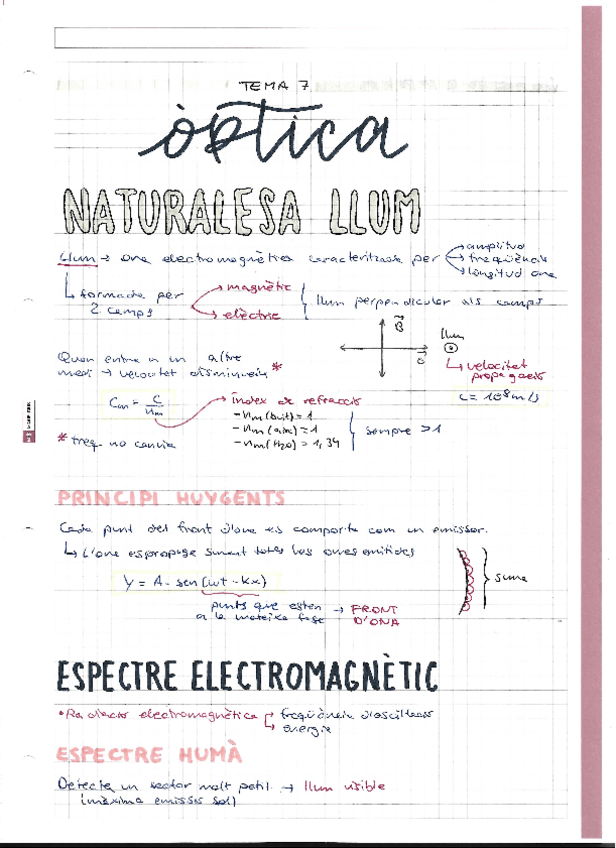 TEMA 7
òptica
NATURALESA LLUM
Llum → ona electromagnètica caracteritzada per → amplitud
→ freqüència
→ longitud ona
↳ formada per 2 camps → magnètic
→ elèctric
llum perpendicular als camps
B
llum
↳ velocitat propagació
c = 10⁸ m/s
Quan entra a un altre
medi → velocitat disminueix *
Cm = C/nm
índex de refracció
- nm (buit) = 1
- nm (aire) ≈ 1
- nm (H2O) = 1,34
sempre > 1
* freq no canvia
PRINCIPI HUYGENTS
Cada punt del front d'ona es comporta com un emissor.
↳ L'ona es propaga sumant totes les ones emitides
Y = A · sen (ωt - kx)
suma
punts que estan → FRONT
a la mateixa fase D'ONA
ESPECTRE ELECTROMAGNÈTIC
• Radiació electromagnètica → freqüència d'oscil·lació
→ energia
ESPECTRE HUMÀ
Detecta un sector molt petit → llum visible
(màxima emissió sol)